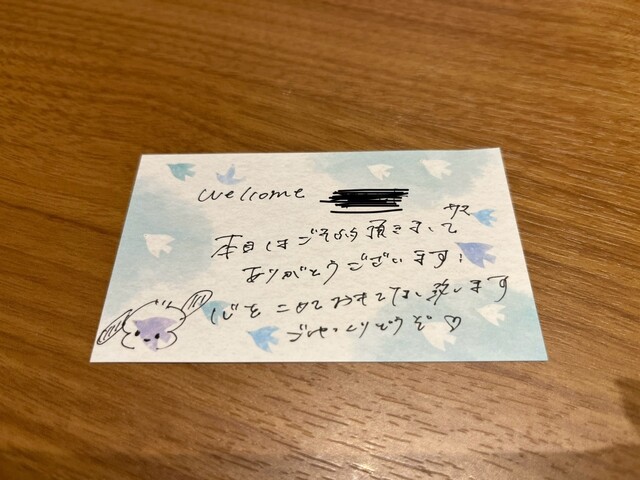 Welcome
サマ
本日はご予約頂きまして
ありがとうございます!
心をこめておもてなし致します
ごゆっくりどうぞ♡